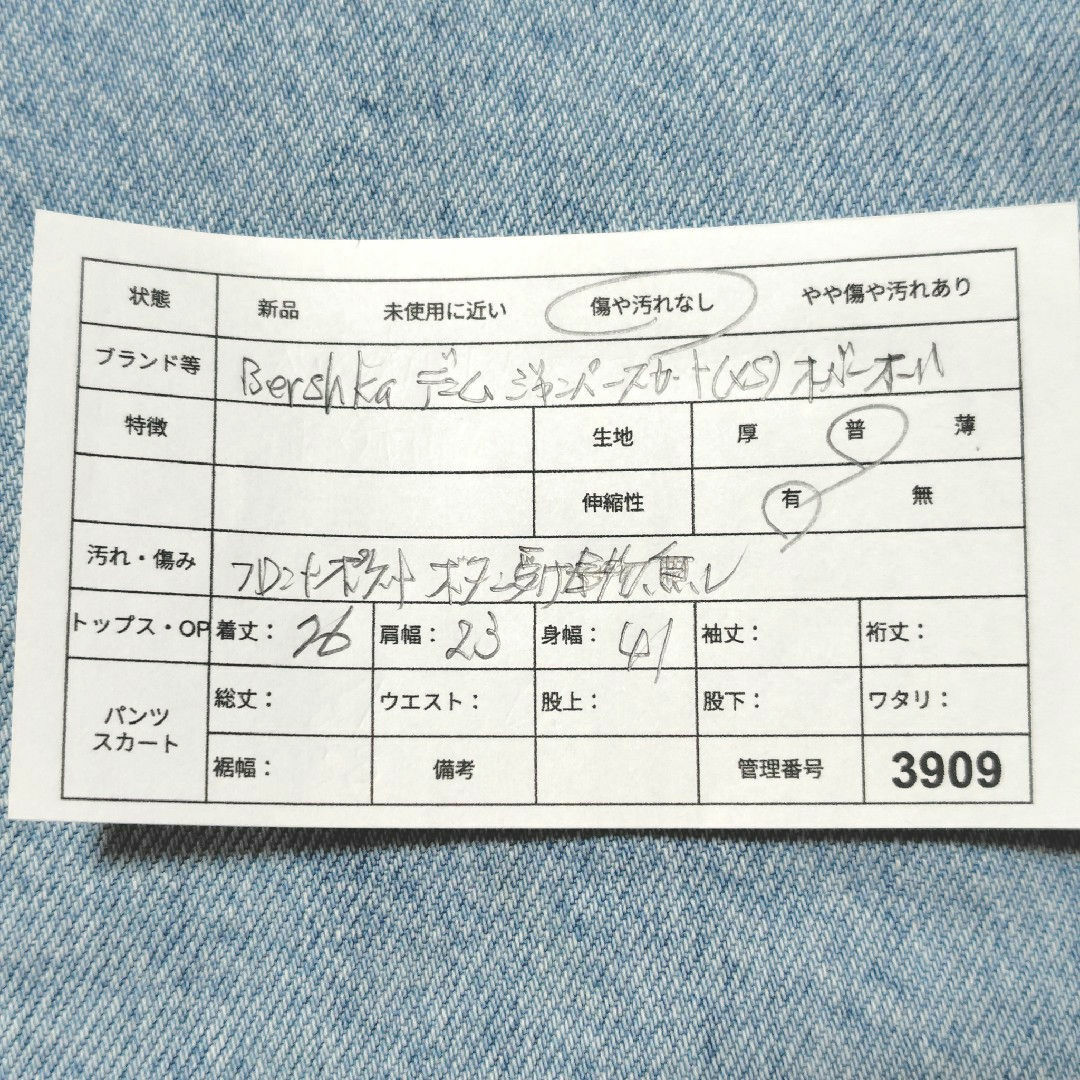 状態 新品 未使用に近い 傷や汚れなし やや傷や汚れあり
ブランド等 Bershka デニム ジャンパースカート(XS) オーバーオール
特徴 生地 厚 普 薄
伸縮性 有 無
汚れ・傷み フロントポケット ボタン受け 無し
トップス・OP 着丈: 76 肩幅: 23 身幅: 41 袖丈: 裄丈:
パンツ スカート 総丈: ウエスト: 股上: 股下: ワタリ:
裾幅: 備考 管理番号 3909